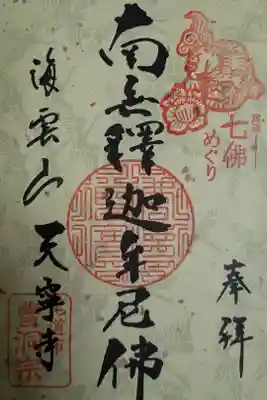 七佛
めぐり
奉拝
南无釋迦牟尼佛
海雲山 天寧寺
尾道市
曹洞宗